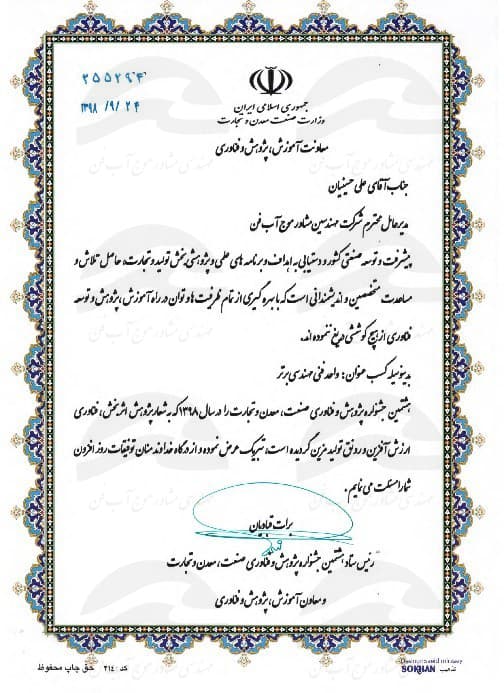 ۲۵۵۲۹۴
۱۳۹۸ /۹/ ۲۴
جمهوری اسلامی ایران
وزارت صنعت معدن و تجارت
معاونت آموزش، پژوهش و فناوری
جناب آقای علی حسینیان
مدیرعامل محترم شرکت مهندسین مشاور موج آب فن
پیشرفت و توسعه صنعتی کشور و دستیابی به اهداف و برنامه های علمی و پژوهشی بخش تولید و تجارت، حاصل تلاش و
مساعدت متخصصین و اندیشمندانی است که با بهره گیری از تمام ظرفیت ها و توان در راه آموزش، پژوهش و توسعه
فناوری از هیچ کوششی دریغ ننموده اند.
بدینوسیله کسب عنوان: واحد فنی مهندسی برتر
هشتمین جشنواره پژوهش و فناوری صنعت، معدن و تجارت را در سال ۱۳۹۸ که به شعار پژوهش اثربخش، فناوری
ارزش آفرین و رونق تولید مزین گردیده است، تبریک عرض نموده و از درگاه خداوند منان توفیقات روز افزون
شما را مسئلت می نمایم.
برات قبادیان
رئیس ستاد هشتمین جشنواره پژوهش و فناوری صنعت، معدن و تجارت
و معاون آموزش، پژوهش و فناوری
SOKHAN تذهیب
کد: ۲۱۴ حق چاپ محفوظ